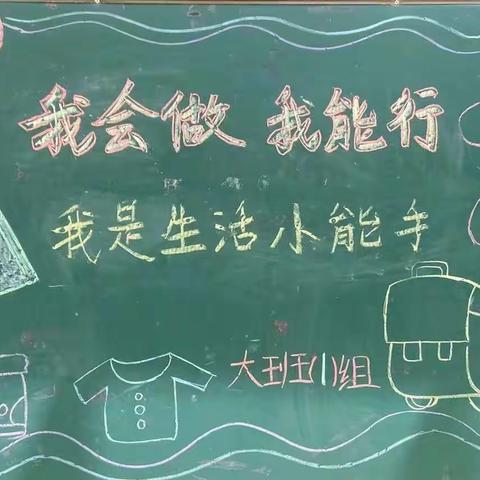 我会做 我能行
我是生活小能手
大班小组